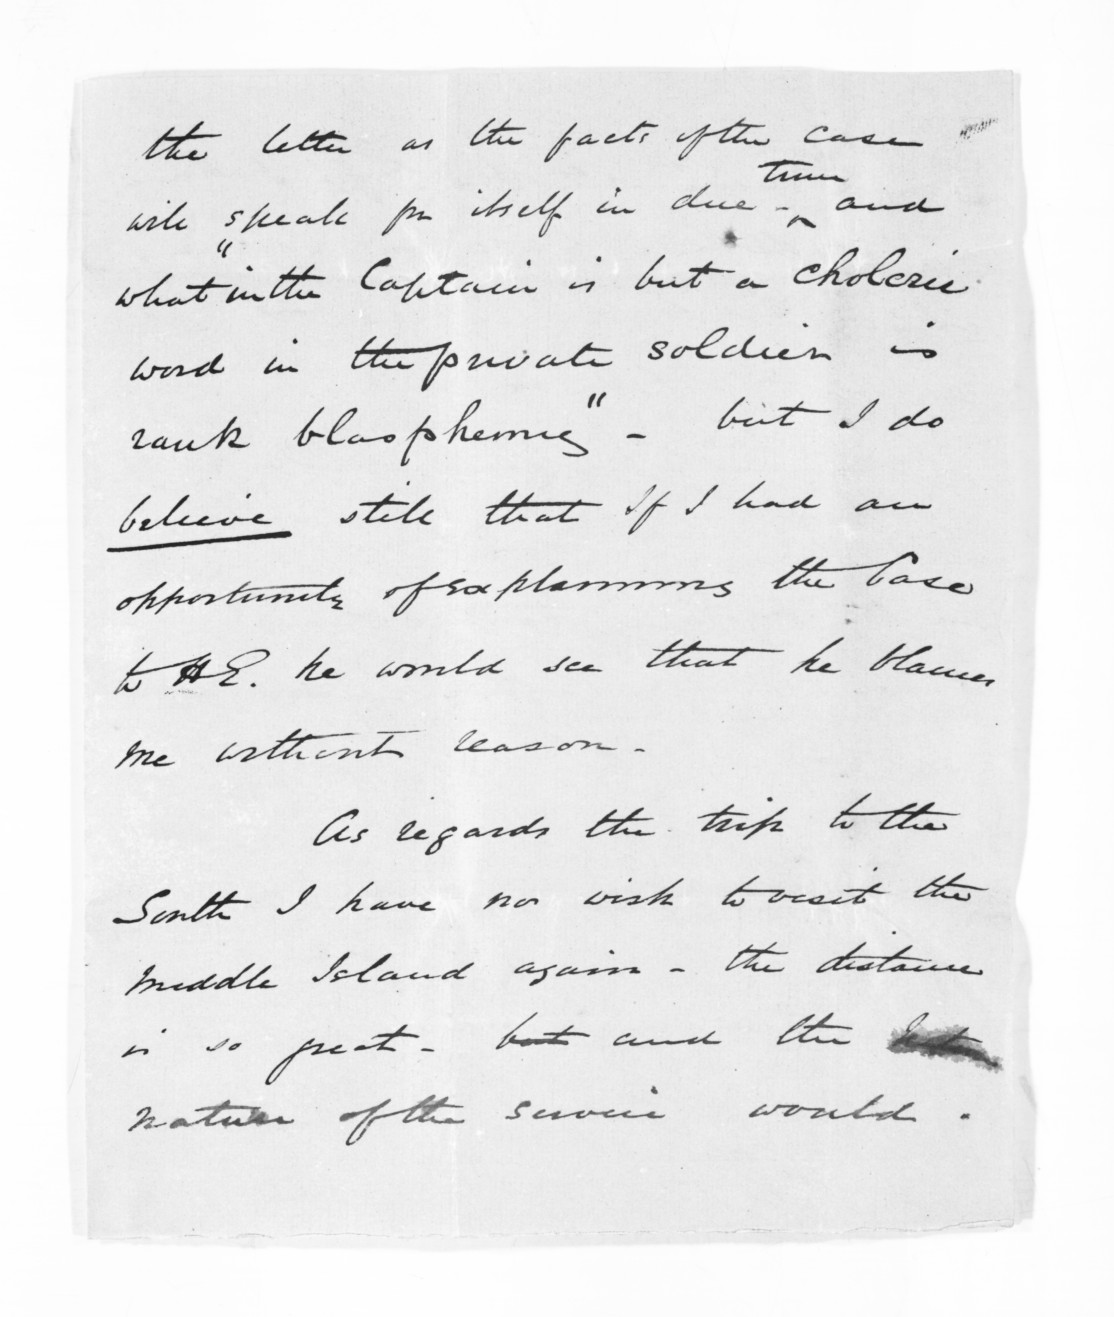 the letter as the facts of the case
will speak for itself in due - time and
what "in the Captain is but a choleric
word in the private soldier is
rank blasphemy" - but I do
believe still that If I had an
opportunity of explaining the Case
to HE. he would see that he blames
me without reason -
As regards the trip to the
South I have no wish to visit the
Middle Island again - the distance
is so great - but and the
nature of the service would .